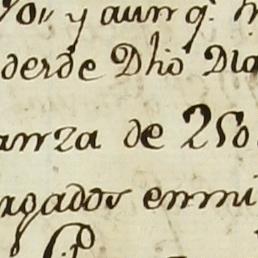 y aunq.
desde Dho Dia
anza de 250
gados enmi